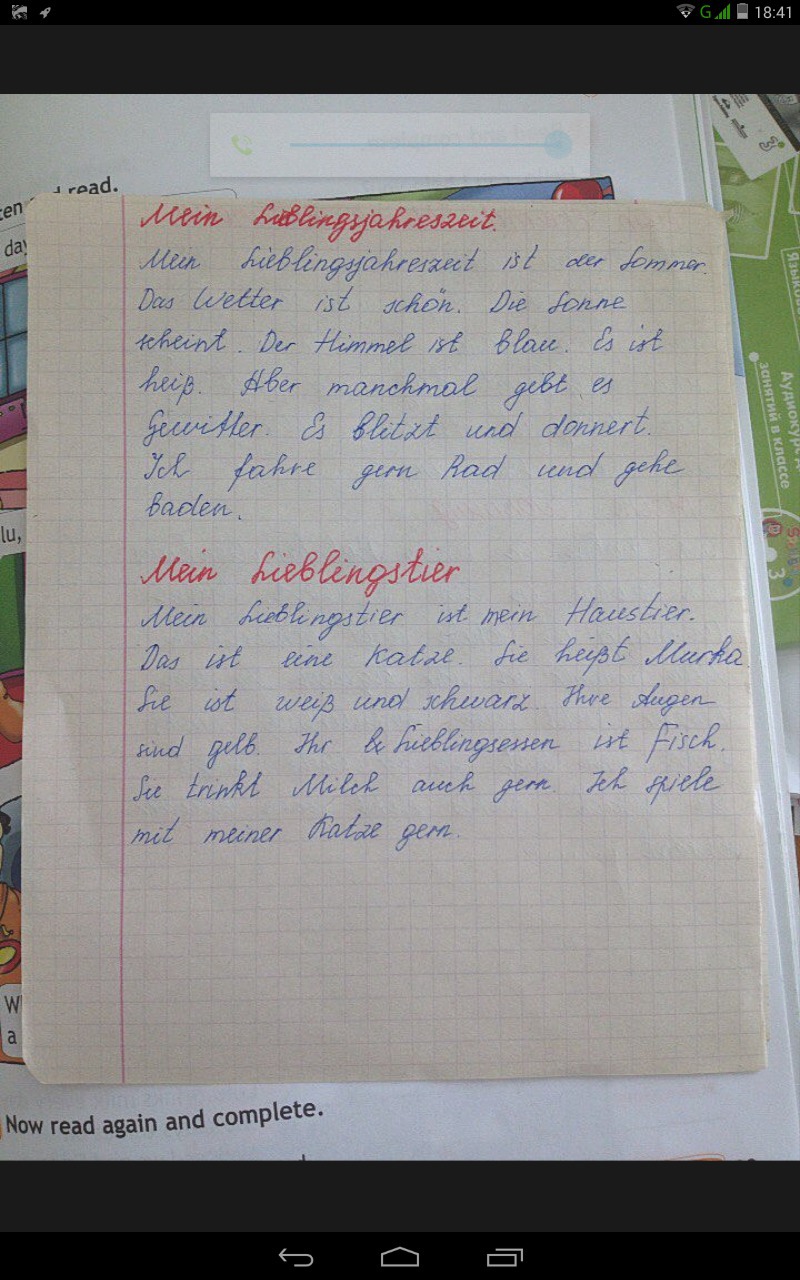 G 18:41
ten and read.
day
Mein Lieblingsjahreszeit.
Mein Lieblingsjahreszeit ist der Sommer.
Das Wetter ist schön. Die Sonne
scheint. Der Himmel ist blau. Es ist
heiß. Aber manchmal gibt es
Gewitter. Es blitzt und donnert.
Ich fahre gern Rad und gehe
baden.
Mein Lieblingstier
Mein Lieblingstier ist mein Haustier.
Das ist eine Katze. Sie heißt Murka
Sie ist weiß und schwarz. Ihre Augen
sind gelb. Ihr Lieblingsessen ist Fisch.
Sie trinkt Milch auch gern. Ich spiele
mit meiner Katze gern.
lu,
W
a
Now read again and complete.
Аудиокурс
занятий в классе
3